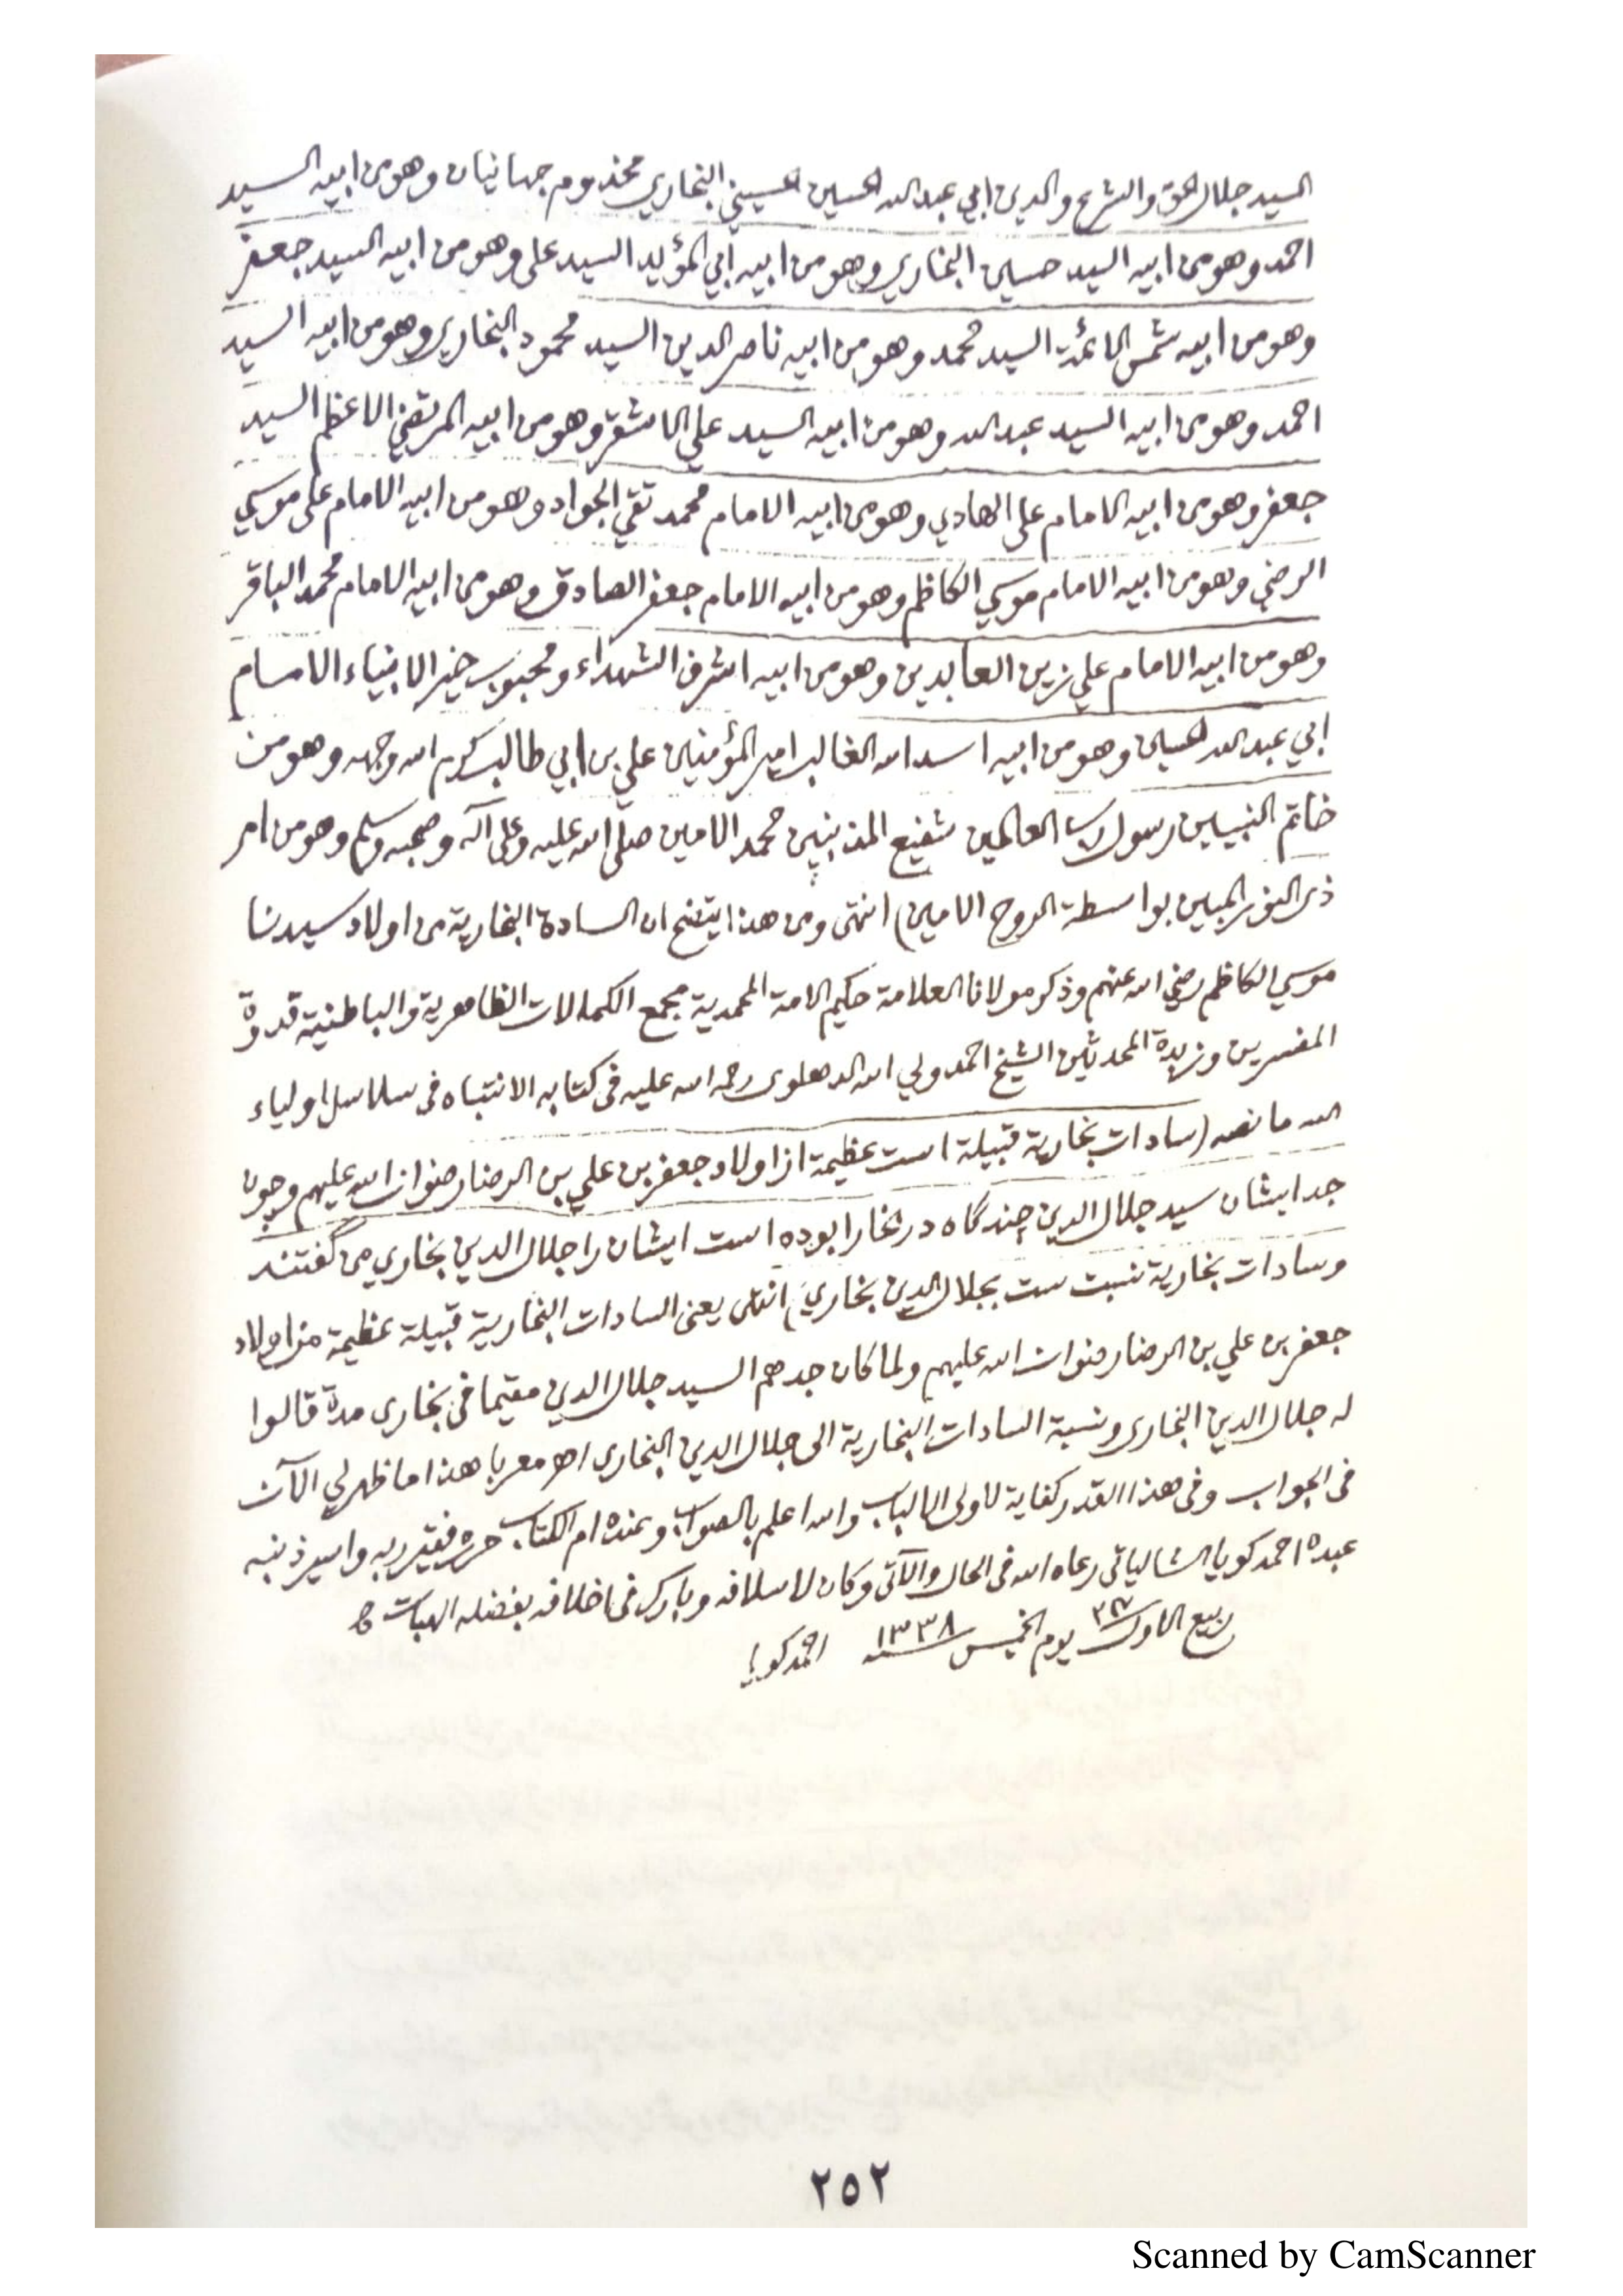 السيد جلال الحق والشرع والدين ابي عبد الله الحسين الحسيني البخاري مخدوم جهانيان وهو من ابيه السيد
احمد وهو من ابيه السيد حسين البخاري وهو من ابيه ابي المؤيد السيد علي وهو من ابيه السيد جعفر
وهو من ابيه شمس الائمة السيد محمد وهو من ابيه ناصر الدين السيد محمود البخاري وهو من ابيه السيد
احمد وهو من ابيه السيد عبد الله وهو من ابيه السيد علي الاشقر وهو من ابيه المرتضي الاعظم السيد
جعفر وهو من ابيه الامام علي الهادي وهو من ابيه الامام محمد تقي الجواد وهو من ابيه الامام علي موسي
الرضي وهو من ابيه الامام موسي الكاظم وهو من ابيه الامام جعفر الصادق وهو من ابيه الامام محمد الباقر
وهو من ابيه الامام علي زين العابدين وهو من ابيه اشرف الشهداء ومحبوب خير الانبياء الامام
ابي عبد الله الحسين وهو من ابيه اسد الله الغالب امير المؤمنين علي بن ابي طالب كرم الله وجهه وهو من
خاتم النبيين رسول رب العالمين شفيع المذنبين محمد الامين صلى الله عليه وعلى آله وصحبه وسلم وهو من امر
ذى النور المبين بواسطة الروح الامين) انتهى ومن هذا يتضح ان السادة البخارية من اولاد سيدنا
موسي الكاظم رضي الله عنهم وذكر مولانا العلامة حكيم الامة المحمدية مجمع الكمالات الظاهرية والباطنية قدوة
المفسرين وزبدة المحدثين الشيخ احمد ولي الله الدهلوى رحمه الله عليه فى كتابه الانتباه فى سلاسل اولياء
الله ما نصه (سادات بخارية قبيلة است عظيمة از اولاد جعفر بن علي بن الرضا رضوان الله عليهم وچون
جد ايشان سيد جلال الدين چندگاه در بخارا بوده است ايشان را جلال الدين بخاري مى گفتند
وسادات بخارية نسبت ست بجلال الدين بخاري) انتهى يعنى السادات البخارية قبيلة عظيمة من اولاد
جعفر بن علي بن الرضا رضوان الله عليهم ولما كان جدهم السيد جلال الدين مقيما فى بخارى مدة قالوا
له جلال الدين البخارى ونسبة السادات البخارية الى جلال الدين البخارى اهـ معربا هذا ما ظهر لي الآن
فى الجواب وفى هذا القدر كفاية لاولى الالباب والله اعلم بالصواب وعنده ام الكتاب حرره فقير ربه واسير ذنبه
عبده احمد كويا الشالياتى رعاه الله فى الحال والآتى وكان لاسلافه وبارك فى اخلافه بفضله الهبات
ربيع الاول يوم الخميس سنة ١٣٣٨ احمد كويا
٢٥٢
Scanned by CamScanner